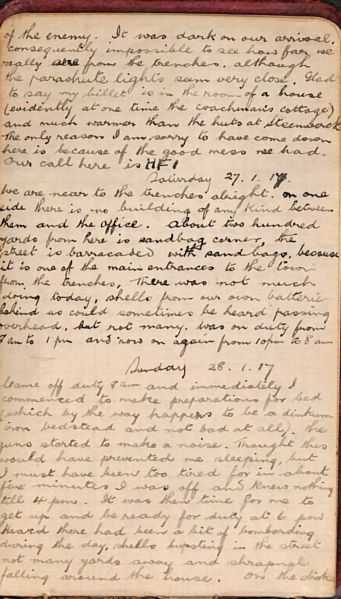 of the enemy. It was dark on our arrival,
consequently impossible to see how far we
really are from the trenches. although
the parachute lights seem very close. Glad
to say my billet is in the room of a house
(evidently at one time the coachman's cottage)
and much warmer than the huts at Steenwerck
the only reason I am sorry to have come down
here is because of the good mess we had.
Our call here is HF1
Saturday 27.1.17.
We are near to the trenches alright. on one
side there is no building of any kind between
them and the office. About two hundred
yards from here is sandbag corner, the
street is barracaded with sand bags, because
it is one of the main entrances to the town
from the trenches, There was not much
doing today, shells from our own batteries
behind us could sometimes be heard passing
overhead, but not many. was on duty from
8am to 1 pm and now on again from 10pm to 8 am
Sunday 28.1.17
Came off duty 8am and immediately I
commenced to make preparations for bed
(which by the way happens to be a dinkum
iron bedstead and not bad at all). the
guns started to make a noise. Thought this
would have prevented me sleeping, but
I must have been too tired for in about
five minutes I was off and knew nothing
till 4 pm. It was then time for me to
get up and be ready for duty at 6 pm
Heard there had been a bit of bombarding
during the day, shells bursting in the street
not many yards away and shrapnel
falling around the house. On the